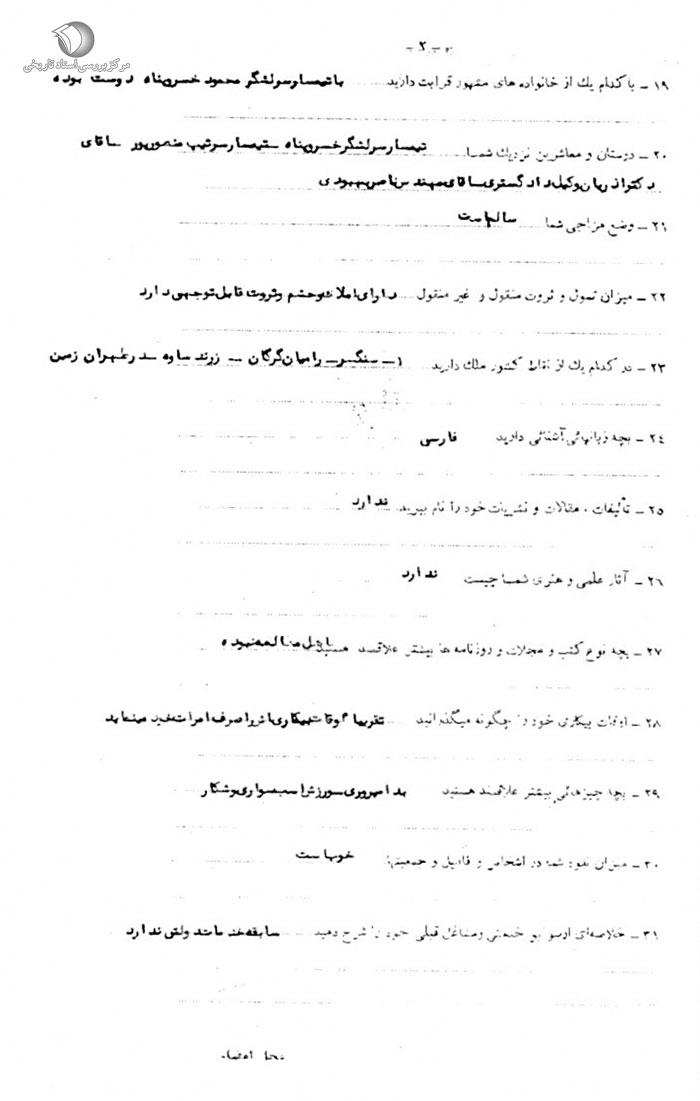 مرکز بررسی اسناد تاریخی
ـ ۲ ـ
۱۹ ـ با کدام یک از خانواده های مشهور قرابت دارید باتیمسار سرلشگر محمود خسروپناه دوست بوده
۲۰ ـ دوستان و معاشرین نزدیک شما تیمسار سرلشگر خسروپناه ـ تیمسار سرتیپ منصورپور ـ آقای
دکتر وکیل دادگستری ـ آقای مهندس ناصر بهبودی
۲۱ ـ وضع مزاجی شما سالم است
۲۲ ـ میزان تمول و ثروت منقول و غیر منقول دارای املاک و حشم و ثروت قابل توجهی دارد
۲۳ ـ در کدام یک از نقاط کشور ملک دارید ۱ ـ سنگسر ـ رامیان گرگان ـ زرند ساوه ـ در طهران زمین
۲۴ ـ بچه زبانهائی آشنائی دارید فارسی
۲۵ ـ تألیفات ، مقالات و نشریات خود را نام ببرید ندارد
۲۶ ـ آثار علمی و هنری شما چیست ندارد
۲۷ ـ بچه نوع کتب و مجلات و روزنامه ها بیشتر علاقمند هستید مطالعه نبوده
۲۸ ـ اوقات بیکاری خود را چگونه میگذرانید تقریبا اوقات بیکاری اش را صرف امرات خود مینماید
۲۹ ـ بچه چیزهائی بیشتر علاقمند هستید بدامپروری ـ ورزش اسب سواری و شکار
۳۰ ـ میزان نفوذ شما در اشخاص و فامیل و جمعیتها خوب است
۳۱ ـ خلاصه‌ای از سوابق خدمتی و مشاغل قبلی خود را شرح دهید سابقه خدمات دولتی ندارد
محل امضاء